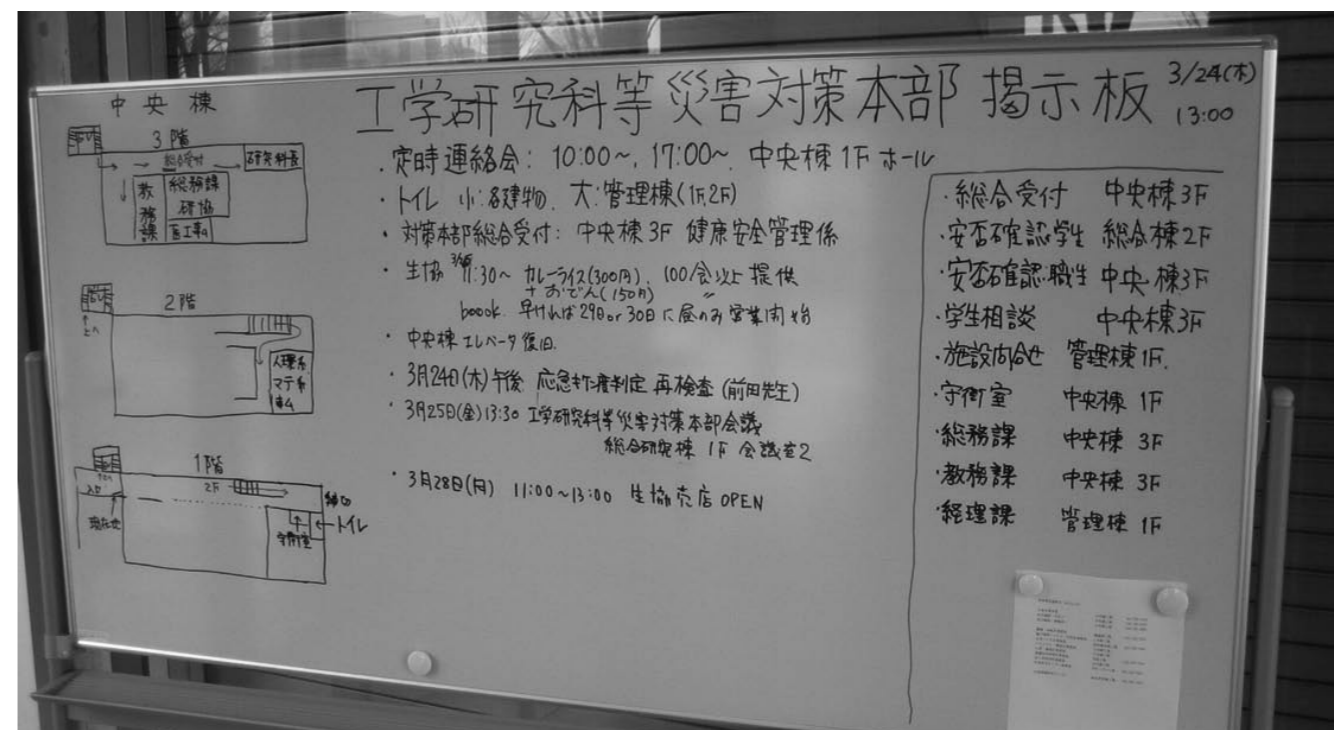 工学研究科等災害対策本部 掲示板 3/24(木)
13:00
中央棟
3階
総合受付
研究科長
教務課
総務課
研協
2階
上へ
人環系
マテ系
1階
入口
2F
現在地
守衛室
トイレ
・定時連絡会: 10:00~, 17:00~, 中央棟 1F ホール
・トイレ 小:各建物、大:管理棟(1F,2F)
・対策本部総合受付: 中央棟3F 健康安全管理係
・生協 11:30~ カレーライス(300円)、100食以上提供
+おでん(150円) 〃
boook 早ければ29日or30日に昼のみ営業開始
・中央棟エレベータ復旧.
・3月24日(木)午後 応急危険度判定 再検査 (前田先生)
・3月25日(金)13:30 工学研究科等災害対策本部会議
総合研究棟 1F 会議室2
・3月28日(月) 11:00~13:00 生協売店 OPEN
・総合受付 中央棟3F
・安否確認:学生 総合棟2F
・安否確認:職員 中央棟3F
・学生相談 中央棟3F
・施設問合せ 管理棟1F.
・守衛室 中央棟 1F
・総務課 中央棟 3F
・教務課 中央棟 3F
・経理課 管理棟 1F